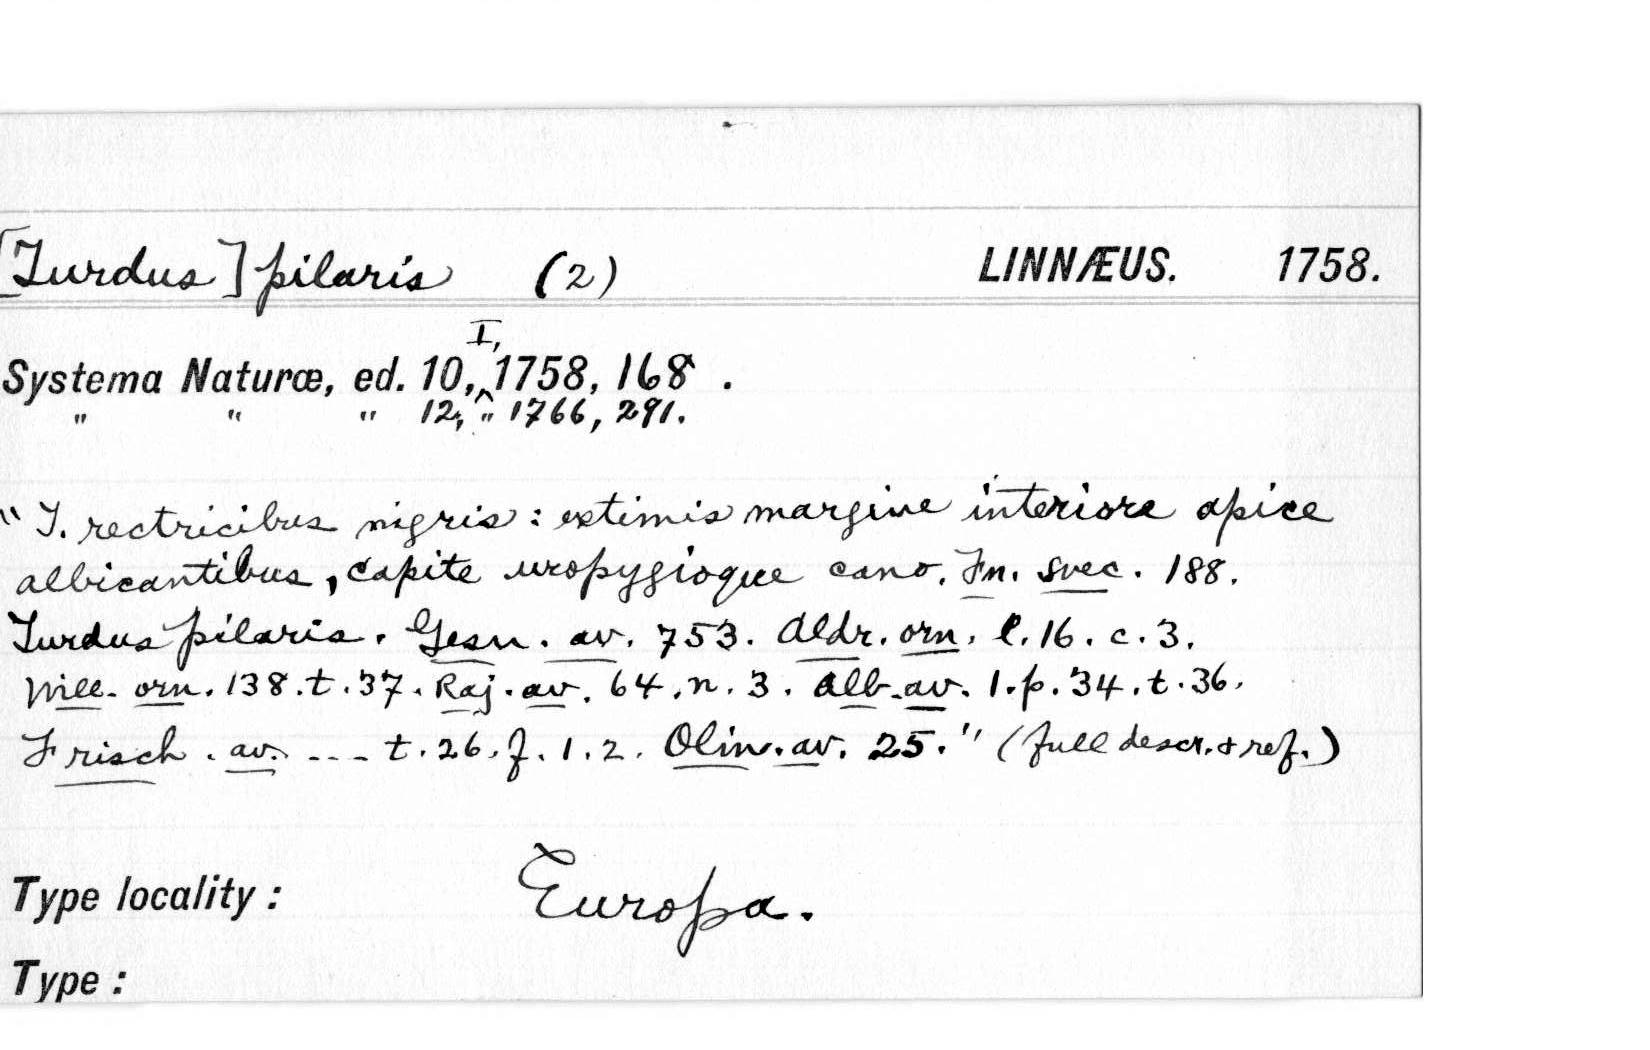 [Turdus] pilaris (2) LINNÆUS. 1758.
I,
Systema Naturæ, ed. 10,‸1758, 168 .
" " " 12, " 1766, 291.
"T. rectricibus nigris: extimis margine interiore apice
albicantibus, capite uropygioque cano. Fn. svec. 188.
Turdus pilaris. Gesn. av. 753. Aldr. orn. l. 16. c. 3.
Will. orn. 138. t. 37. Raj. av. 64. n. 3. Alb. av. 1. p. 34. t. 36.
Frisch. av. --- t. 26. f. 1. 2. Olin. av. 25." (full descr. & ref.)
Type locality: Europa.
Type: